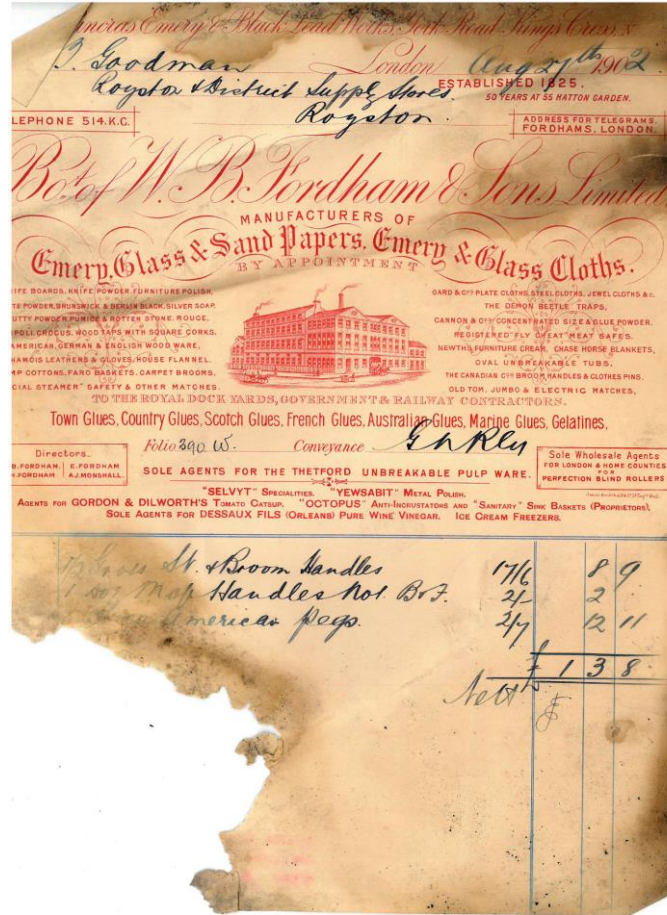 ancras Emery & Black Lead Works, York Road, Kings Cross, N
J. Goodman
London Aug 27th 1902
Royston & District Supply Stores.
ESTABLISHED 1825.
50 YEARS AT 55 HATTON GARDEN.
Royston.
LEPHONE 514.K.C.
ADDRESS FOR TELEGRAMS.
FORDHAMS, LONDON.
Bot. of W. B. Fordham & Sons Limited
MANUFACTURERS OF
Emery, Glass & Sand Papers, Emery & Glass Cloths.
BY APPOINTMENT
IFE BOARDS, KNIFE POWDER, FURNITURE POLISH,
TE POWDER, BRUNSWICK & BERLIN BLACK, SILVER SOAP,
UTTY POWDER, PUMICE & ROTTEN STONE, ROUGE,
POLI, CROCUS, WOOD TAPS WITH SQUARE CORKS,
AMERICAN, GERMAN & ENGLISH WOOD WARE,
HAMOIS LEATHERS & GLOVES, HOUSE FLANNEL,
MP COTTONS, FARO BASKETS, CARPET BROOMS,
CIAL STEAMER" SAFETY & OTHER MATCHES.
OARD & Cos PLATE CLOTHS, STEEL CLOTHS, JEWEL CLOTHS &c.
THE DEMON BEETLE TRAPS,
CANNON & Cos CONCENTRATED SIZE & GLUE POWDER.
REGISTERED FLY CHEAT MEAT SAFES.
NEWTH'S FURNITURE CREAM, CHASE HORSE BLANKETS,
OVAL UNBREAKABLE TUBS,
THE CANADIAN Cos BROOM HANDLES & CLOTHES PINS.
OLD TOM, JUMBO & ELECTRIC MATCHES,
TO THE ROYAL DOCK YARDS, GOVERNMENT & RAILWAY CONTRACTORS.
Town Glues, Country Glues, Scotch Glues, French Glues, Australian Glues, Marine Glues, Gelatines.
Folio 390 W. Conveyance
Directors.
B. FORDHAM. E. FORDHAM
FORDHAM. A.J. MONSHALL.
SOLE AGENTS FOR THE THETFORD UNBREAKABLE PULP WARE.
Sole Wholesale Agents
FOR LONDON & HOME COUNTIES
FOR
PERFECTION BLIND ROLLERS
"SELVYT" SPECIALITIES. "YEWSABIT" METAL POLISH.
AGENTS FOR GORDON & DILWORTH'S TOMATO CATSUP. "OCTOPUS" ANTI-INCRUSTATORS AND "SANITARY" SINK BASKETS (PROPRIETORS).
SOLE AGENTS FOR DESSAUX FILS (ORLEANS) PURE WINE VINEGAR. ICE CREAM FREEZERS.
Gross St. & Broom Handles 17/6 8 9
1 doz Mop Handles No1 B.F. 2/- 2
American Pegs. 2/7 12 11
£ 1 3 8
Nett